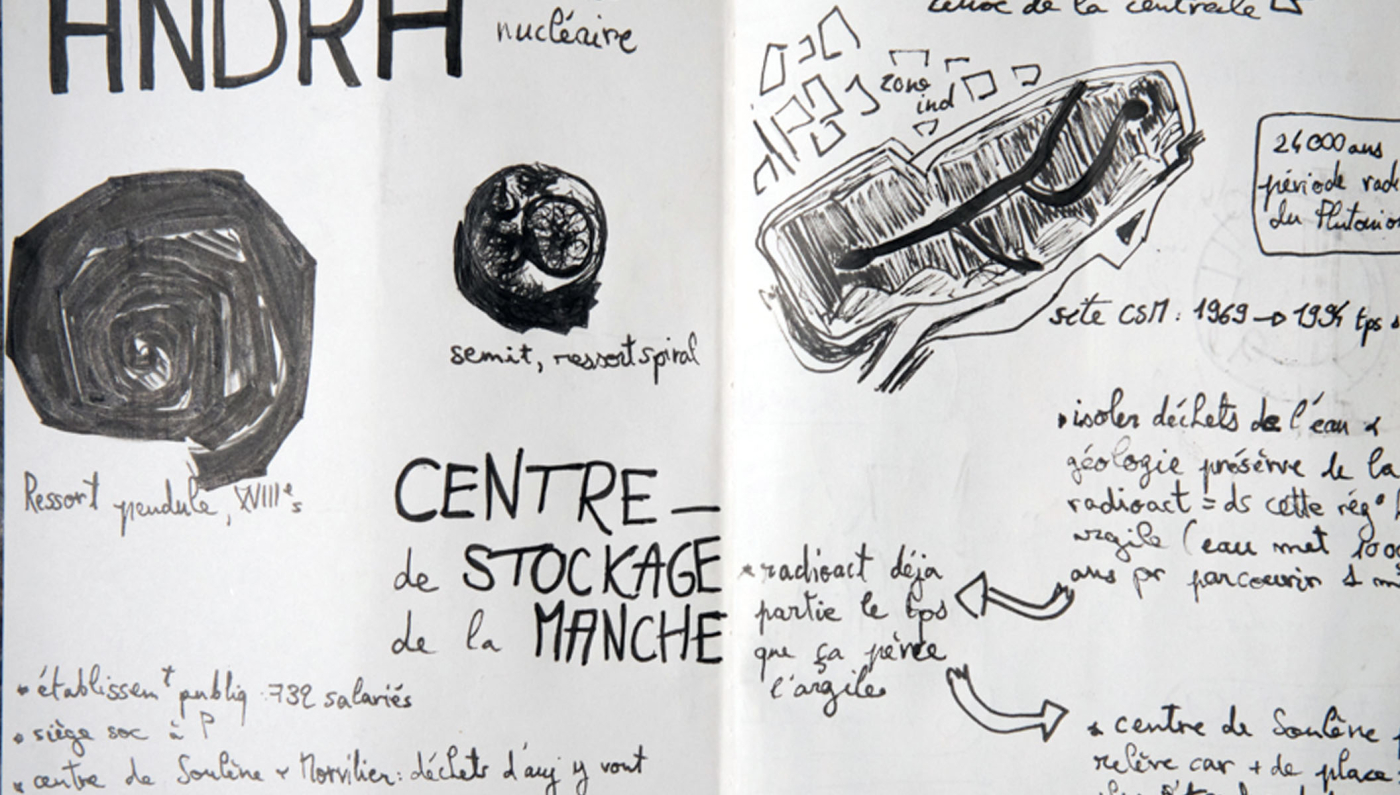 ANDRA
nucléaire
Ressort pendule, XVIIIe s
semit, ressort spiral
CENTRE –
de STOCKAGE
de la MANCHE
• établissemt publiq : 732 salariés
• siège soc à P
• centre de Soulène & Morvilier : déchets d'auj y vont
de la centrale
zone
ind
24 000 ans
période rad
du Plutonio
site CSM : 1969 → 1994 tps
• isoler déchets de l'eau &
géologie présèrve de la
radioact = ds cette rég°
argile (eau met 1000
ans pr parcourir 1 m
* radioact déja
partie le tps
que ça pérce
l'argile
* centre de Soulène
relève car + de place :